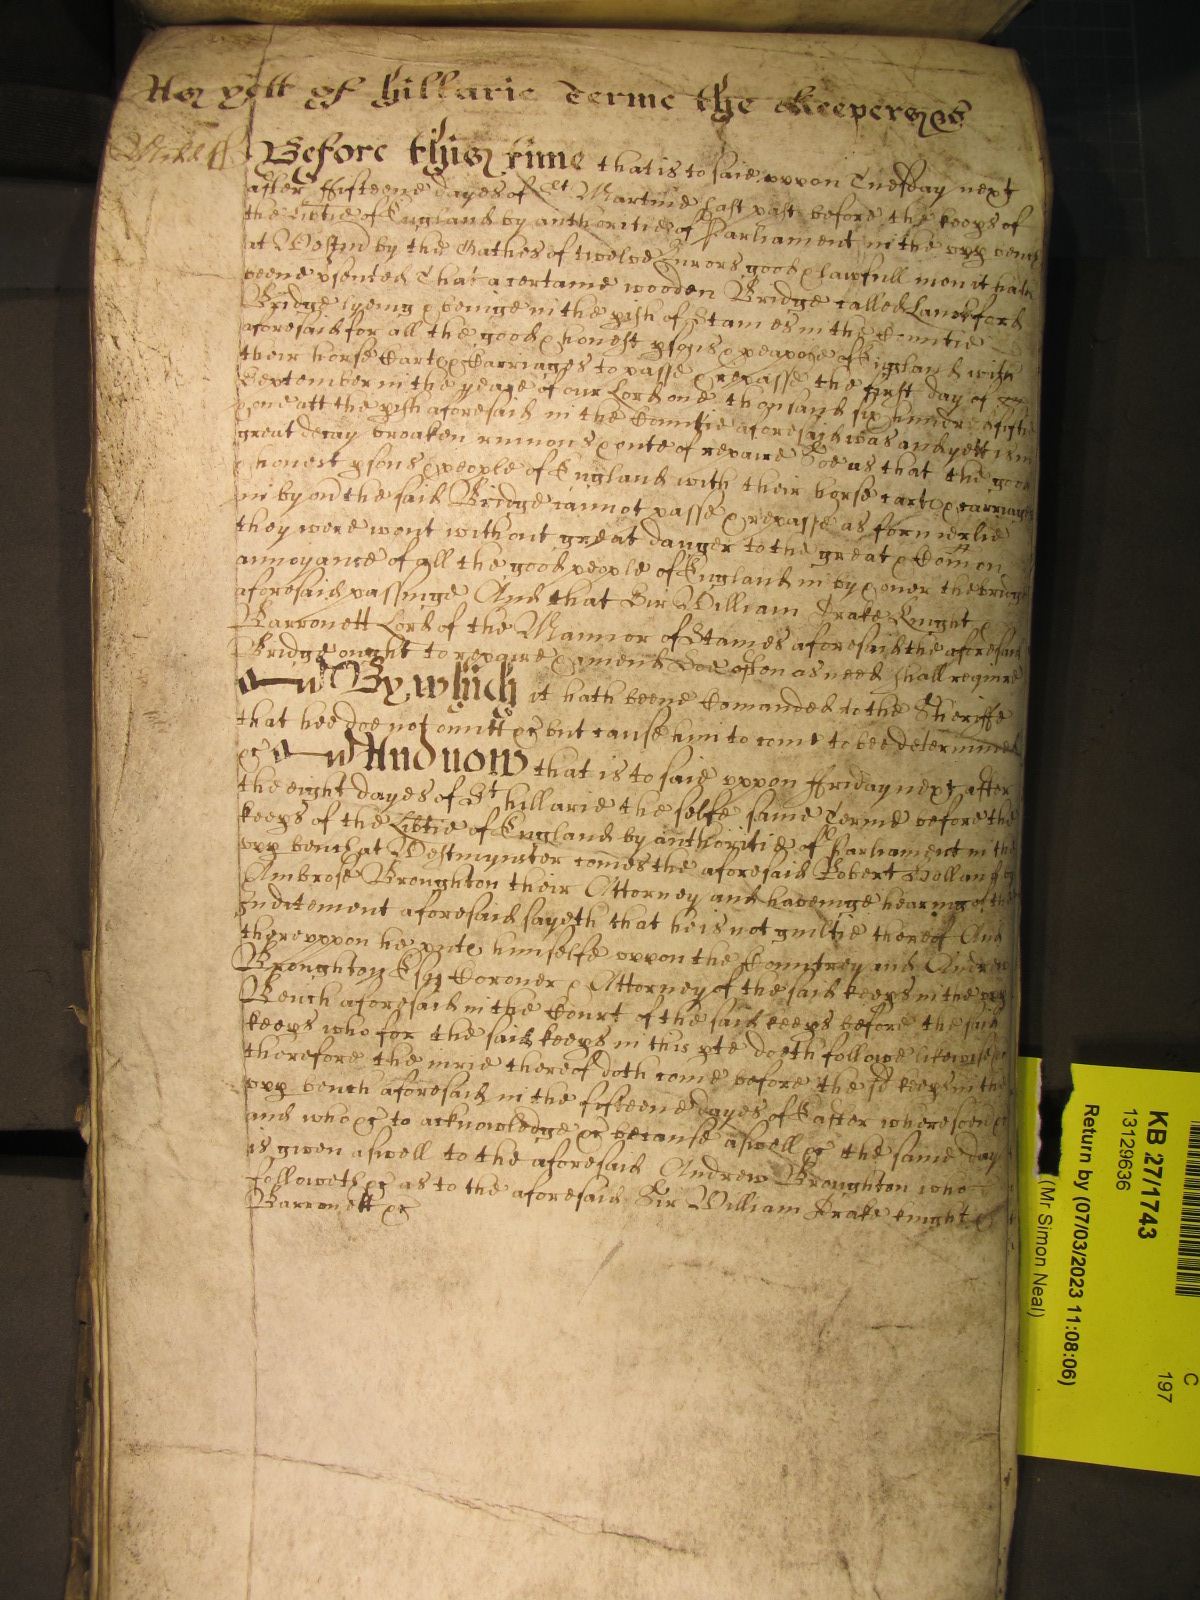 As yett of hillarie Terme the Keepers &c
Midd ss Before this time that is to saie uppon Tuesday next
after Fifteene dayes of St Martine last past before the keeps of
the libtie of England by authoritie of Parliament in the upp bench
at Westm by the Oathes of twelve Jurors good & lawfull men it hath
beene psented That a certaine wooden Bridge called Lanckford
Bridge lyeing & beinge in the pish of Staines in the Countie
aforesaid for all the good & honest psons & people of England with
their horse Carts & Carriages to passe & repasse the first day of
September in the yeare of our Lord one thousand six hundred fiftie
& one att the pish aforesaid in the Countie aforesaid was and yett is in
great decay broaken ruinous & oute of repaire Soe as that the good
& honest psons & people of England with their horse carts & carriages
in by on the said Bridge cannot passe & repasse as formerlie
they were wont without great danger to the great & Comon
annoyance of all the good people of England in by & over the bridge
aforesaid passinge And that Sir William Drake Knight &
Barronett Lord of the Mannor of Staines aforesaid the aforesaid
Bridge ought to repaire & amend Soe often as need shall require
By which it hath beene Comanded to the Sheriffe
that hee doe not omitt &c but cause him to come to bee determined
&c And now that is to saie uppon Friday next after
the eight dayes of St hillarie the selfe same Terme before the
keeps of the Libtie of England by authoritie of Parliament in the
upp bench at Westmynster comes the aforesaid Robert Holland
Ambrose Broughton their Attorney and haveinge hearing of the
Inditement aforesaid sayeth that he is not guiltie thereof And
thereuppon he puts himselfe uppon the Countrey and Andrew
Broughton Esq Coroner & Attorney of the said keeps in the upp
Bench aforesaid in the Court of the said keeps before the said
keeps who for the said keeps in this pte doeth followe likewise
therefore the iurie thereof doth come before the sd keeps in the
upp bench aforesaid in the fifteene dayes of Easter wheresoever
and who &c to acknowledge &c because aswell &c the same day
is given aswell to the aforesaid Andrew Broughton who
followeth &c as to the aforesaid Sir William Drake knight &
Barronett &c
KB 27/1743
13129636
Return by (07/03/2023 11:08:06)
(Mr Simon Neal)
C
197